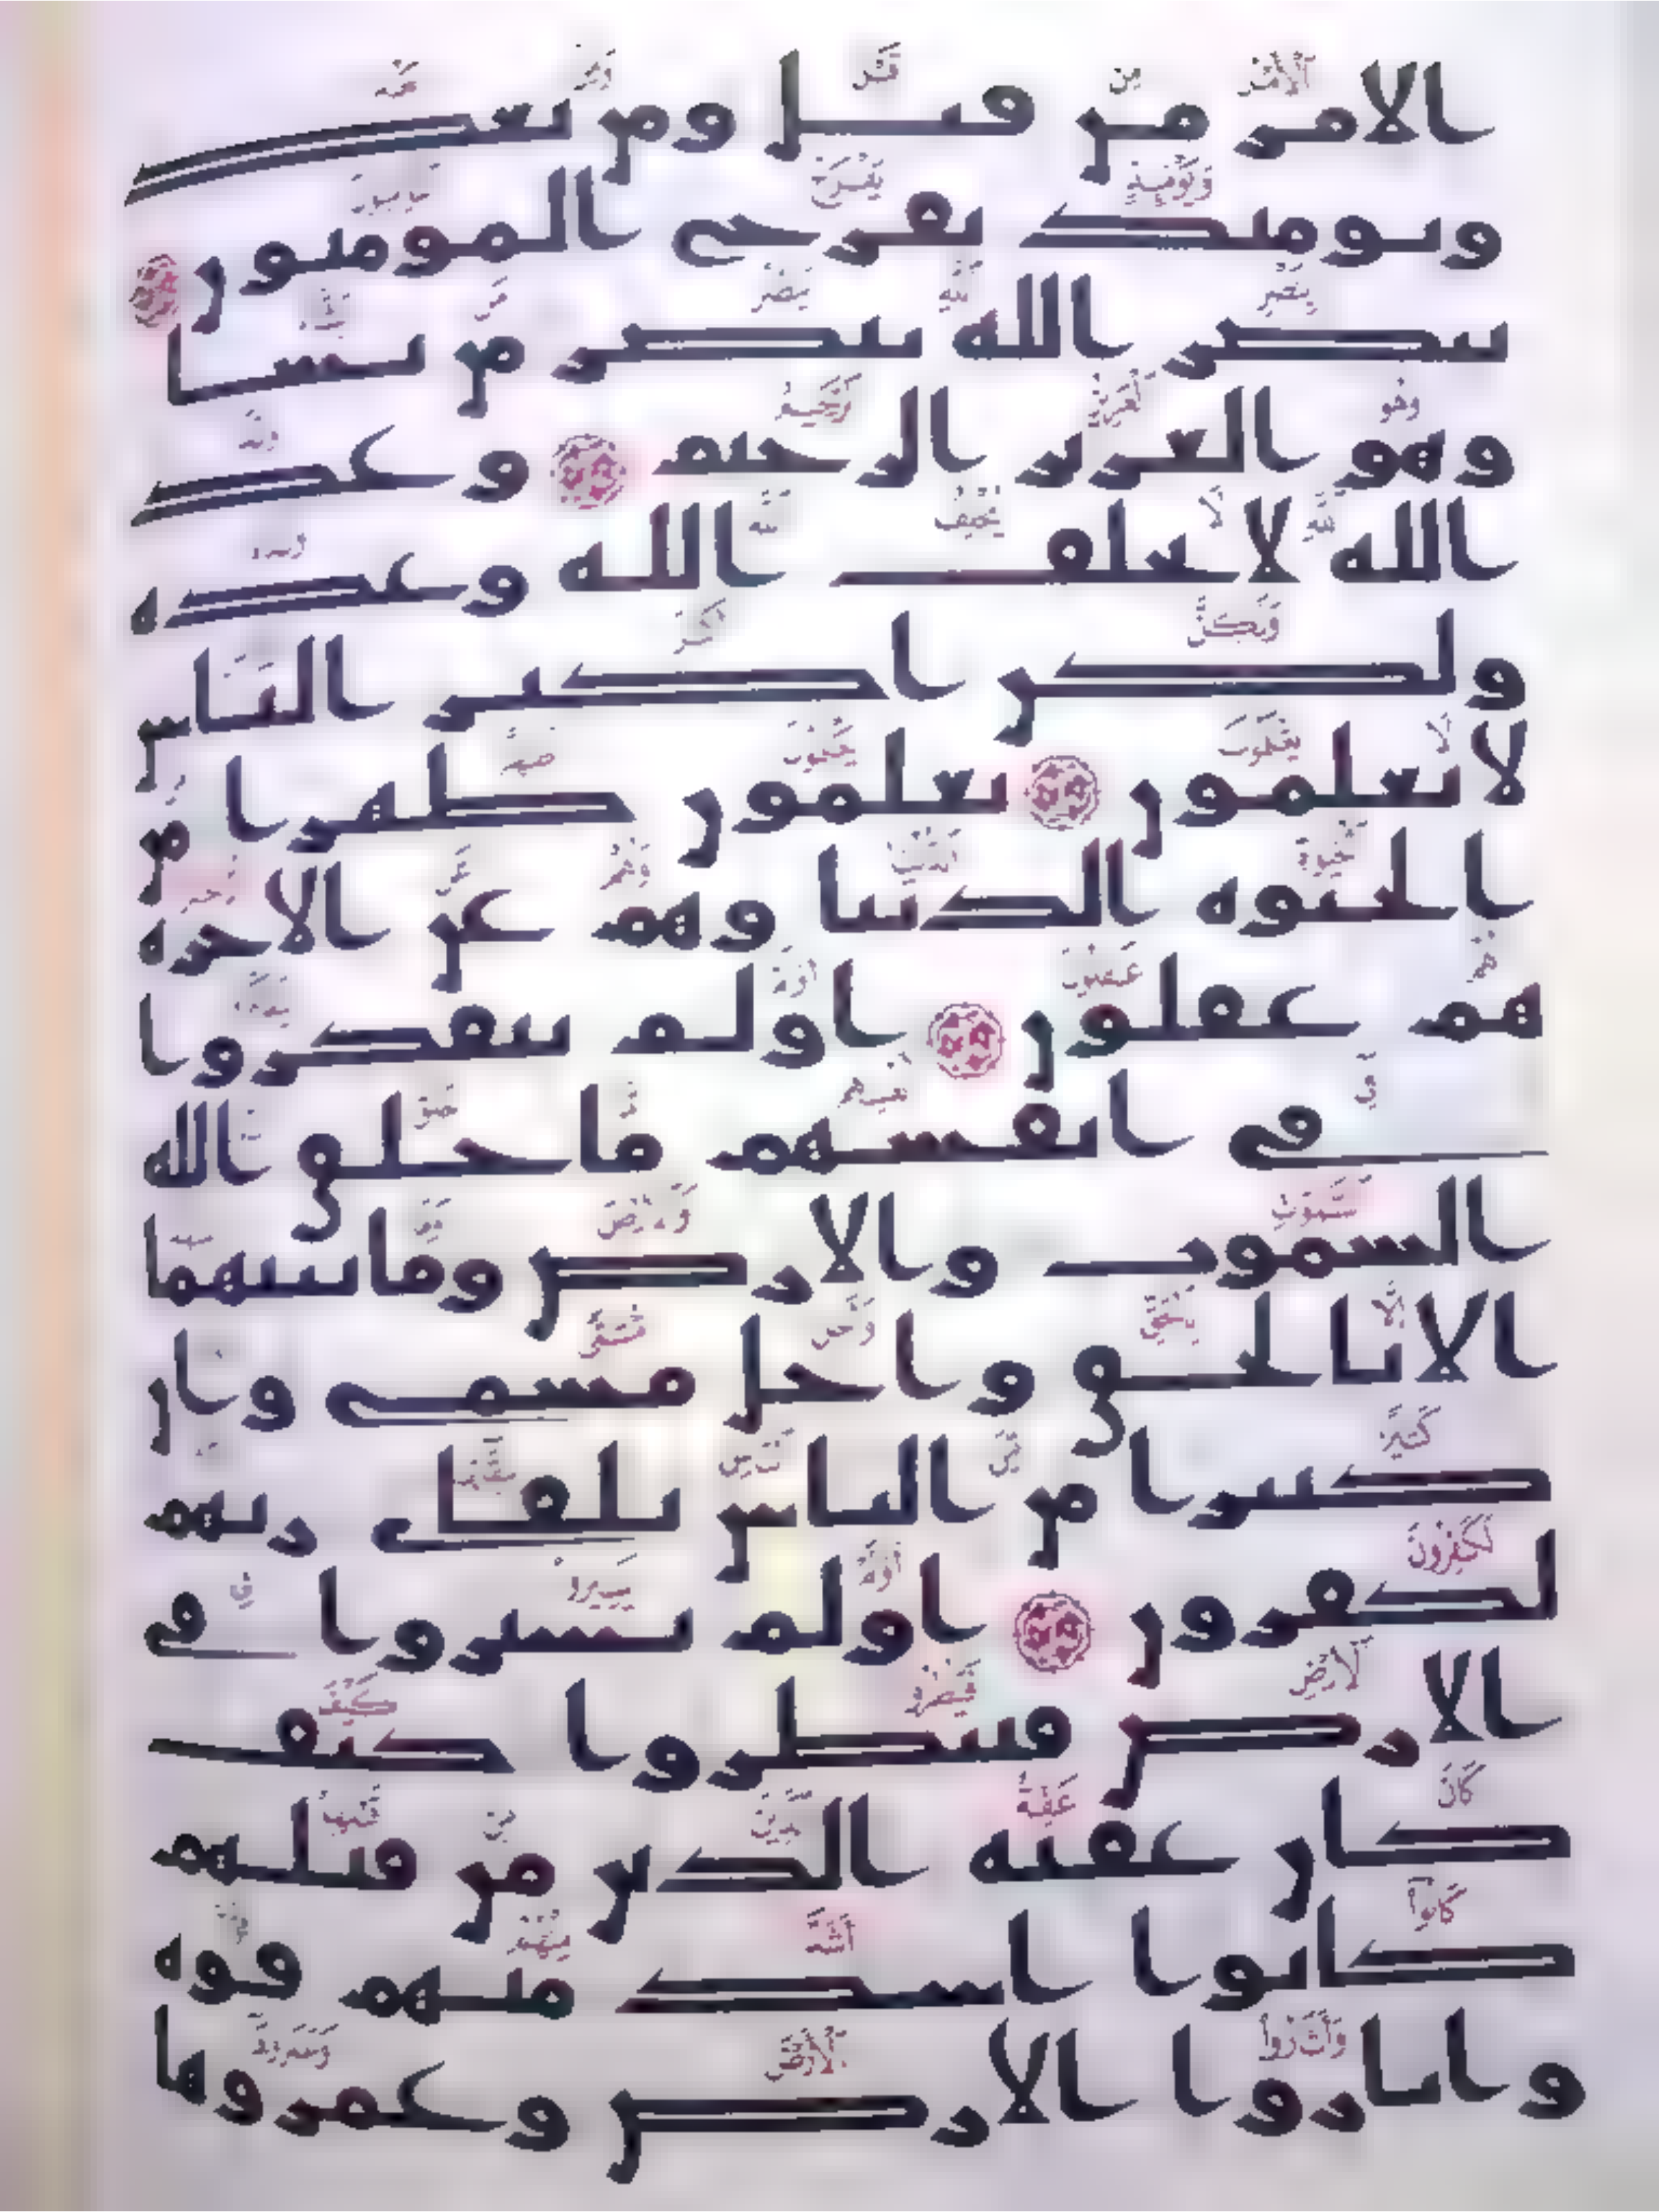 الامر من قبل ومن بعد
ويومئذ يفرح المومنون
بنصر الله ينصر من يشا
وهو العزيز الرحيم وعد
الله لا يخلف الله وعده
ولكن اكثر الناس
لا يعلمون يعلمون ظهرا من
الحيوة الدنيا وهم عن الاخرة
هم غفلون اولم يتفكروا
في انفسهم ما خلق الله
السموت والارض وما بينهما
الا بالحق واجل مسمى وان
كثيرا من الناس بلقاي ربهم
لكفرون اولم يسيروا في
الارض فينظروا كيف
كان عقبة الذين من قبلهم
كانوا اشد منهم قوة
واثاروا الارض وعمروها